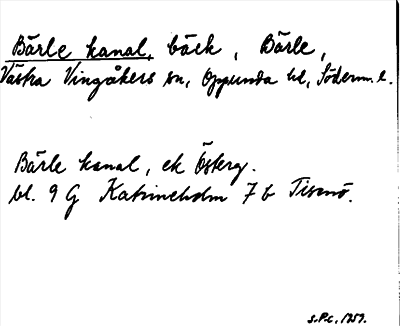 Bärle kanal, bäck, Bärle,
Västra Vingåkers sn, Oppunda hd, Söderm. l.
Bärle kanal, ek Österg.
bl. 9 G Katrineholm 7 b Tisnö.
S.P.c, 1959.